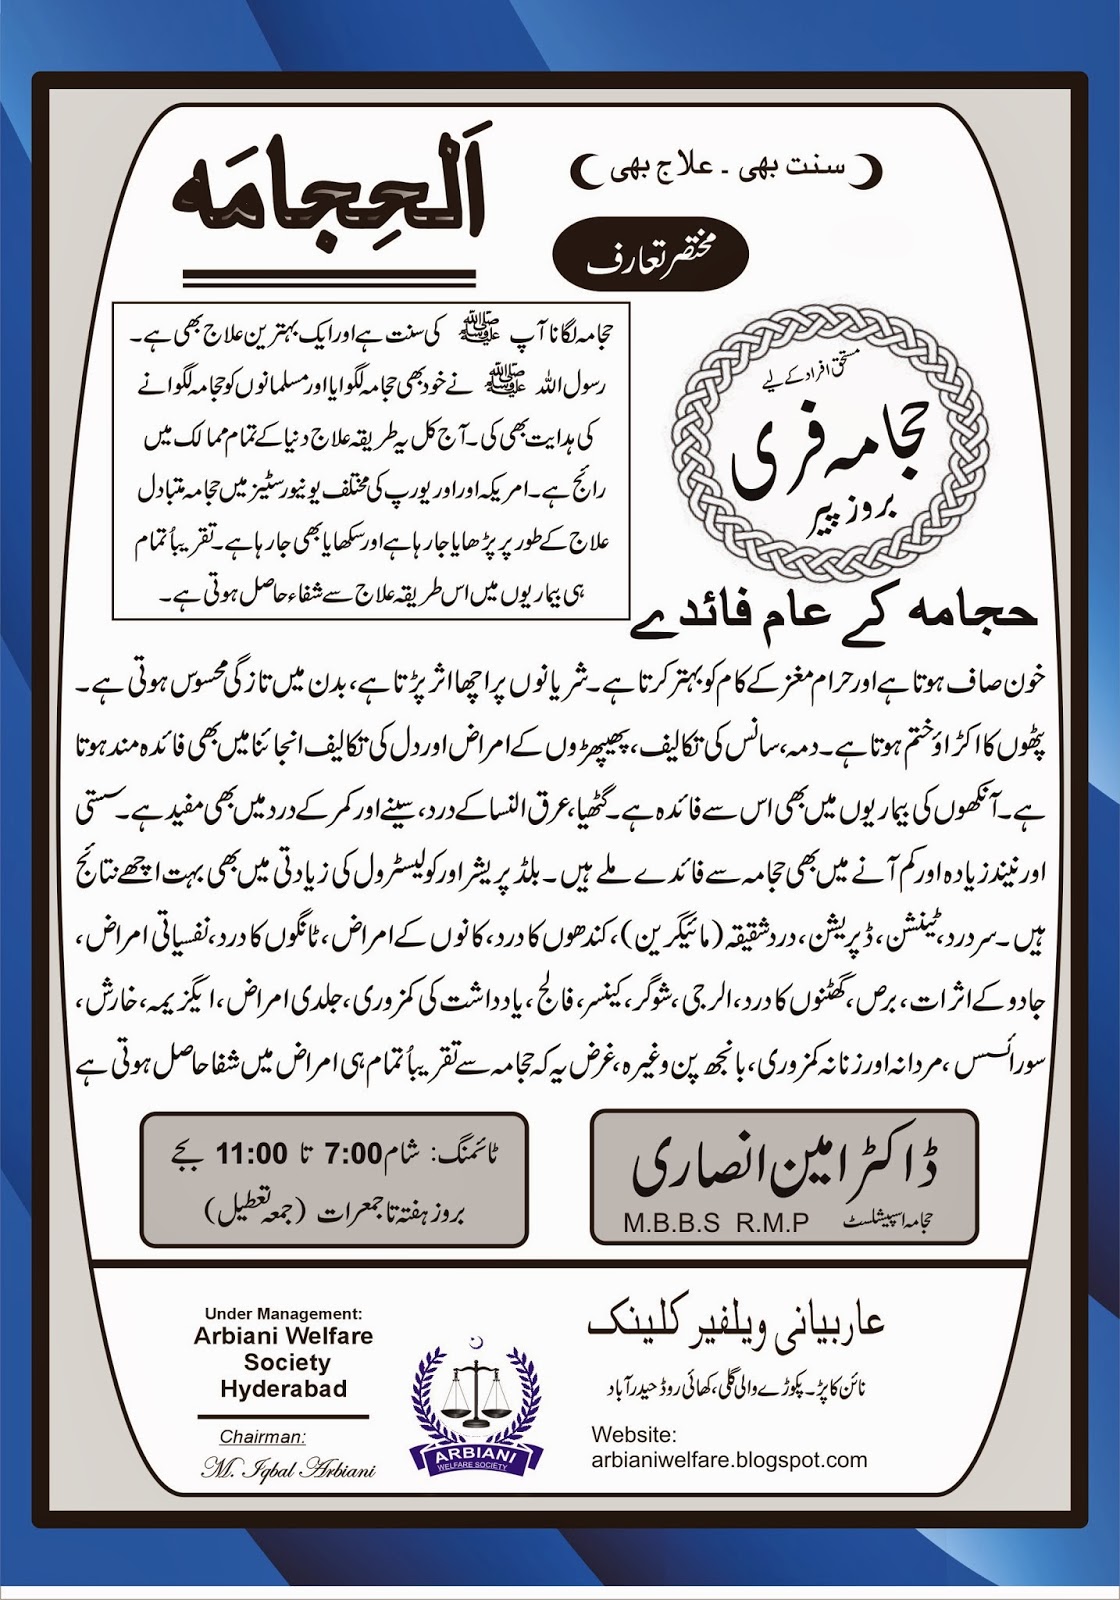 سنت بھی ۔ علاج بھی
اَلْحِجامَه
مختصر تعارف
حجامہ لگانا آپ ﷺ کی سنت ہے اور ایک بہترین علاج بھی ہے۔
رسول اللہ ﷺ نے خود بھی حجامہ لگوایا اور مسلمانوں کو حجامہ لگوانے
کی ہدایت بھی کی۔ آج کل یہ طریقہ علاج دنیا کے تمام ممالک میں
رائج ہے۔ امریکہ اور اور یورپ کی مختلف یونیورسٹیز میں حجامہ متبادل
علاج کے طور پر پڑھایا جارہا ہے اور سکھایا بھی جارہا ہے۔ تقریباً تمام
ہی بیماریوں میں اس طریقہ علاج سے شفاء حاصل ہوتی ہے۔
مستحق افراد کے لیے
حجامہ فری
بروز پیر
حجامه کے عام فائدے
خون صاف ہوتا ہے اور حرام مغز کے کام کو بہتر کرتا ہے۔ شریانوں پر اچھا اثر پڑتا ہے، بدن میں تازگی محسوس ہوتی ہے۔
پٹھوں کا اکڑاؤ ختم ہوتا ہے۔ دمہ، سانس کی تکالیف، پھیپھڑوں کے امراض اور دل کی تکالیف انجائنا میں بھی فائدہ مند ہوتا
ہے۔ آنکھوں کی بیماریوں میں بھی اس سے فائدہ ہے۔ گٹھیا، عرق النسا کے درد، سینے اور کمر کے درد میں بھی مفید ہے۔ سستی
اور نیند زیادہ اور کم آنے میں بھی حجامہ سے فائدے ملے ہیں۔ بلڈ پریشر اور کولیسٹرول کی زیادتی میں بھی بہت اچھے نتائج
ہیں۔ سردرد، ٹینشن، ڈپریشن، درد شقیقہ (مائیگرین)، کندھوں کا درد، کانوں کے امراض، ٹانگوں کا درد، نفسیاتی امراض،
جادو کے اثرات، برص، گھٹنوں کا درد، الرجی، شوگر، کینسر، فالج، یادداشت کی کمزوری، جلدی امراض، ایگزیمہ، خارش،
سورائسس، مردانہ اور زنانہ کمزوری، بانجھ پن وغیرہ، غرض یہ کہ حجامہ سے تقریباً تمام ہی امراض میں شفا حاصل ہوتی ہے
ڈاکٹر امین انصاری
حجامہ اسپیشلسٹ M.B.B.S R.M.P
ٹائمنگ: شام 7:00 تا 11:00 بجے
بروز ہفتہ تا جمعرات (جمعہ تعطیل)
عاربیانی ویلفیر کلینک
نائن کا پڑ۔ پکوڑے والی گلی، کھائی روڈ حیدرآباد
Website:
arbianiwelfare.blogspot.com
Under Management:
Arbiani Welfare
Society
Hyderabad
Chairman:
M. Iqbal Arbiani
ARBIANI
WELFARE SOCIETY